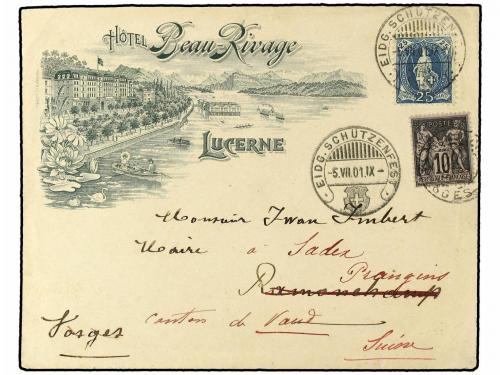 HÔTEL Beau-Rivage
LUCERNE
EIDG. SCHÜTZEN-
25
POSTE
10
EIDG. SCHÜTZENFEST
-5.VII.01.IX-
Monsieur Iwan Imbert
Maire à Sadex
Prangins
Ramonchamp
Vosges canton de Vaud
Suisse